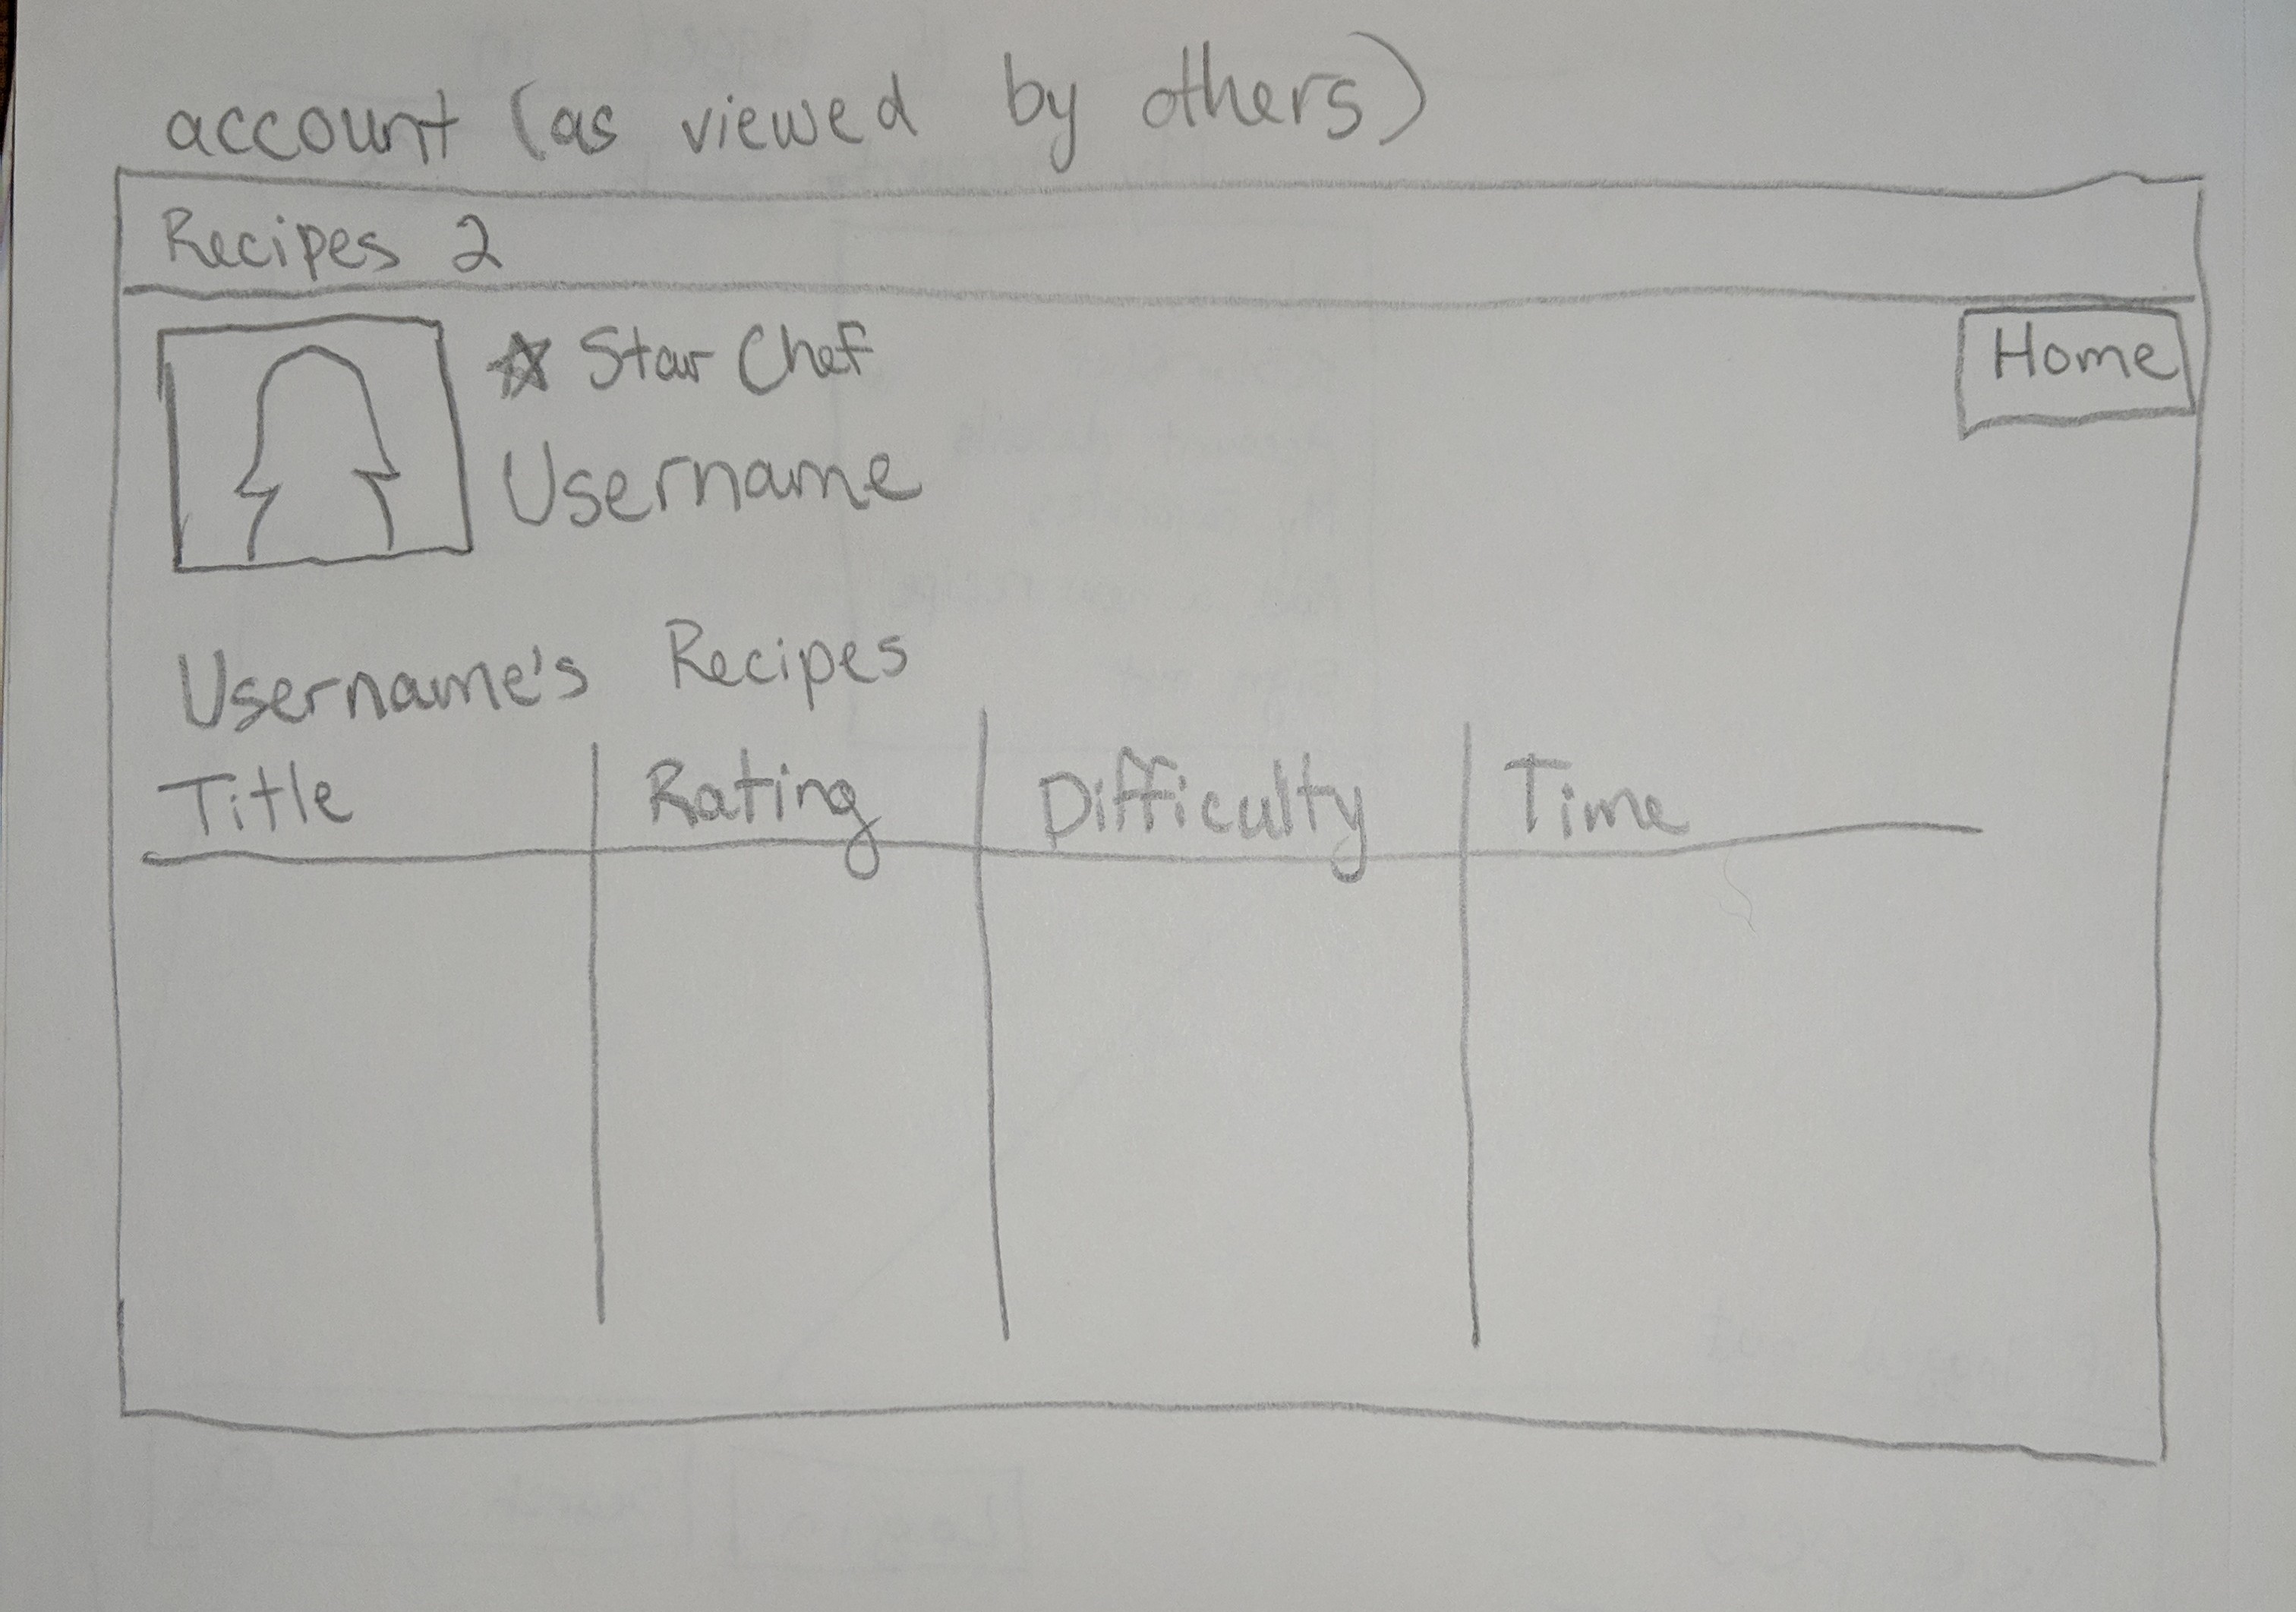 account (as viewed by others)
Recipes 2
☆ Star Chef
Home
Username
Username's Recipes
Title Rating Difficulty Time